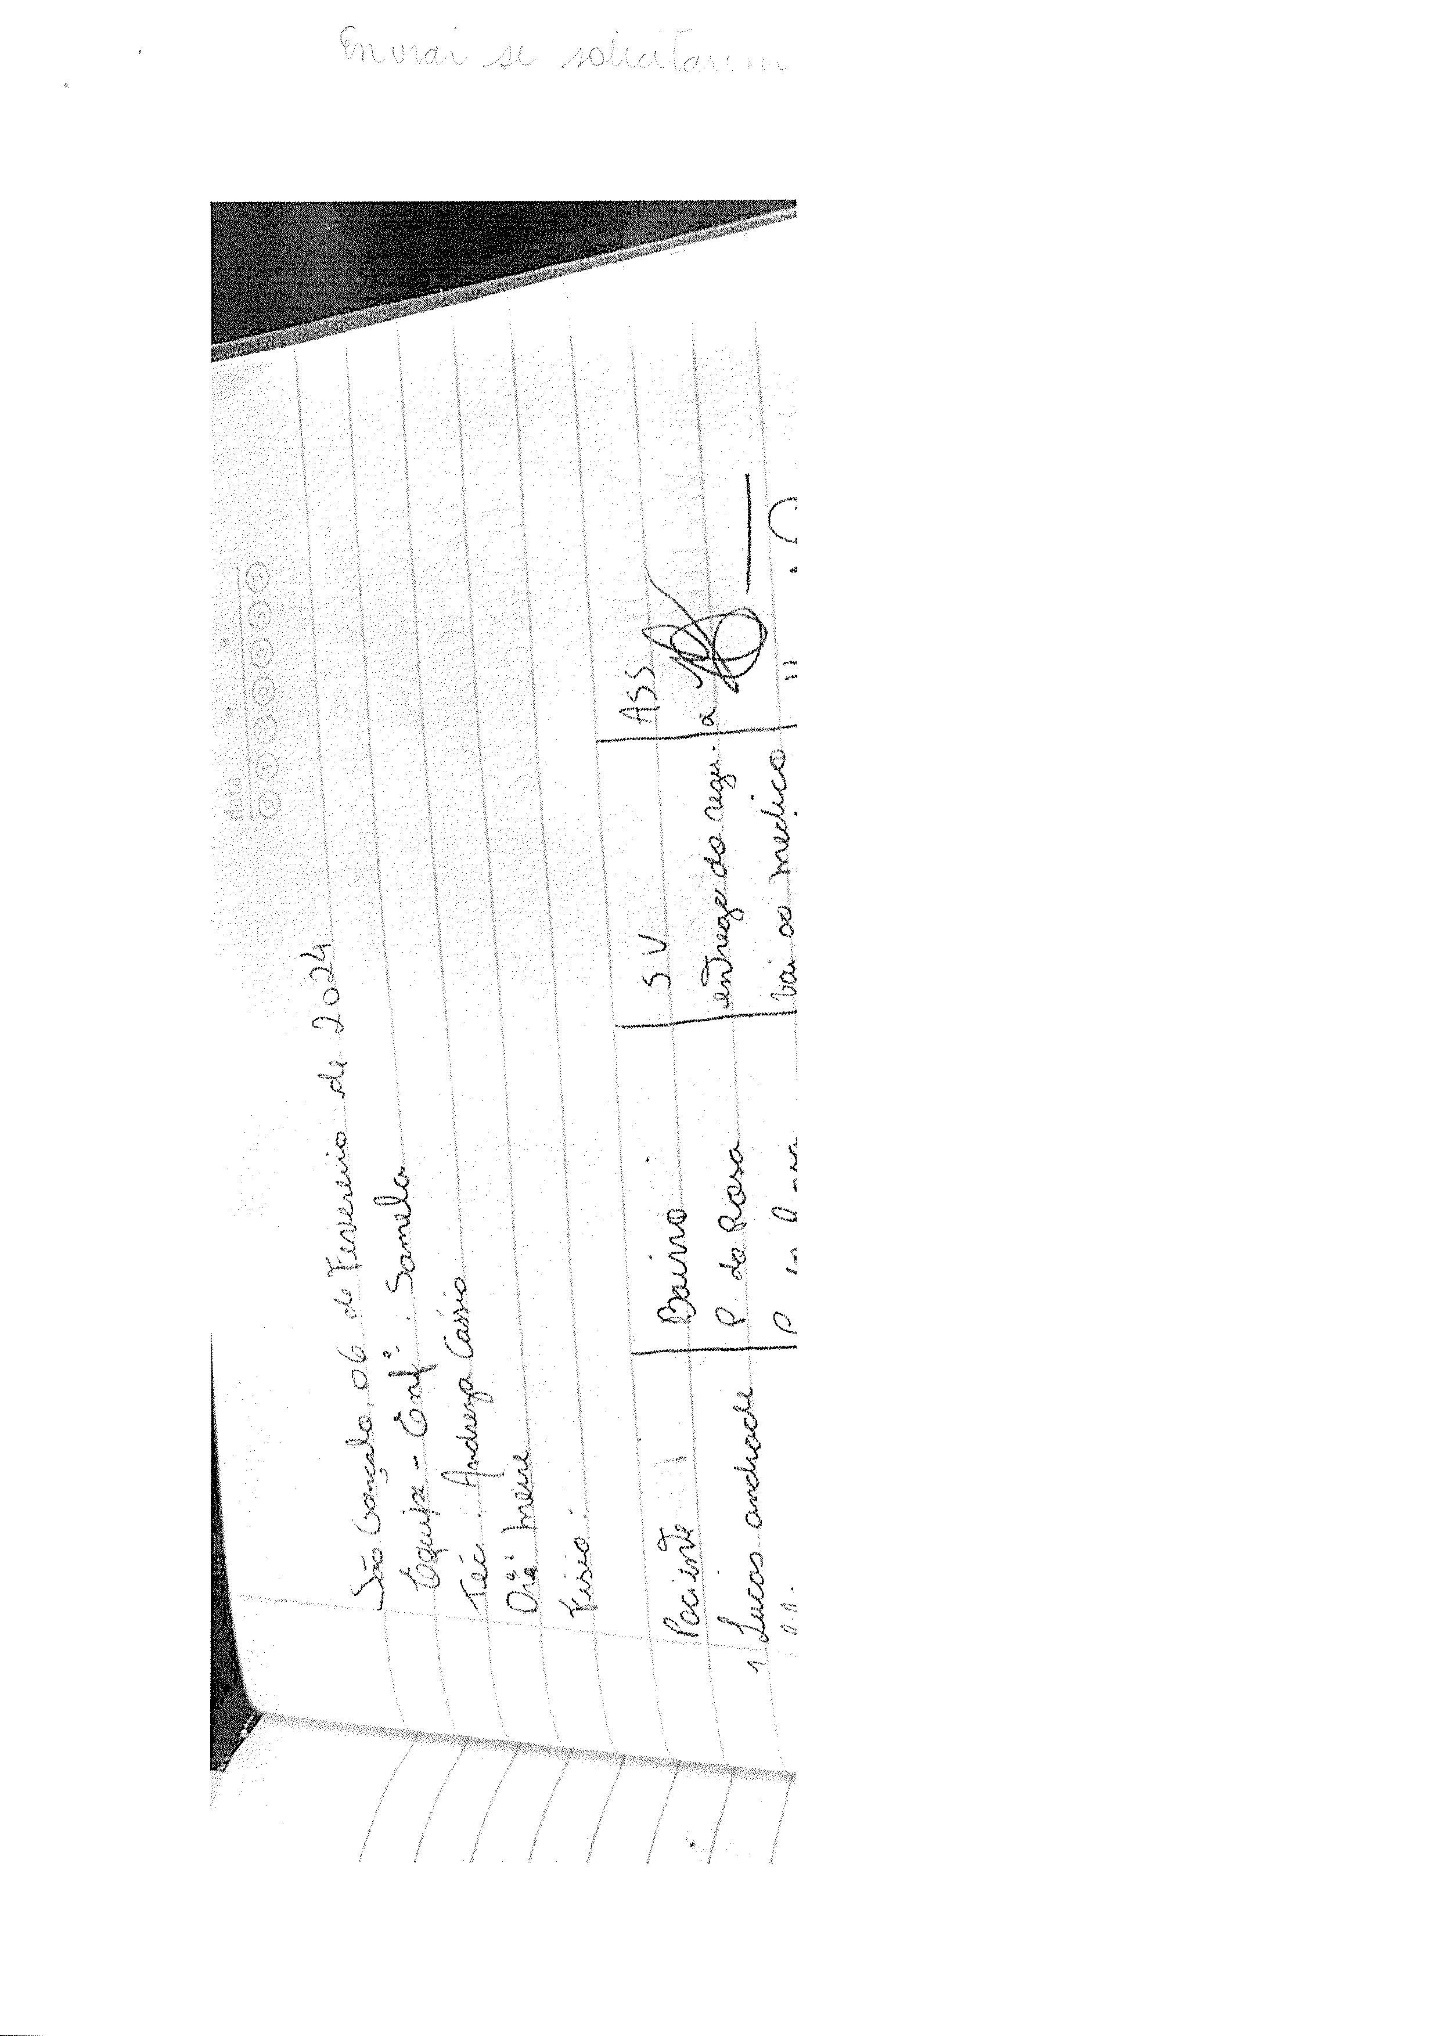 Enviar se solicitarem
data
São Gonçalo, 06 de Fevereiro de 2024
Equipe - Enfª: Samela
Téc: Andreza Cássia
Drª: Meire
Fisio:
Paciente Bairro SV ASS
1 Lucas andrade P da Rosa entrega do a
vai ao medico